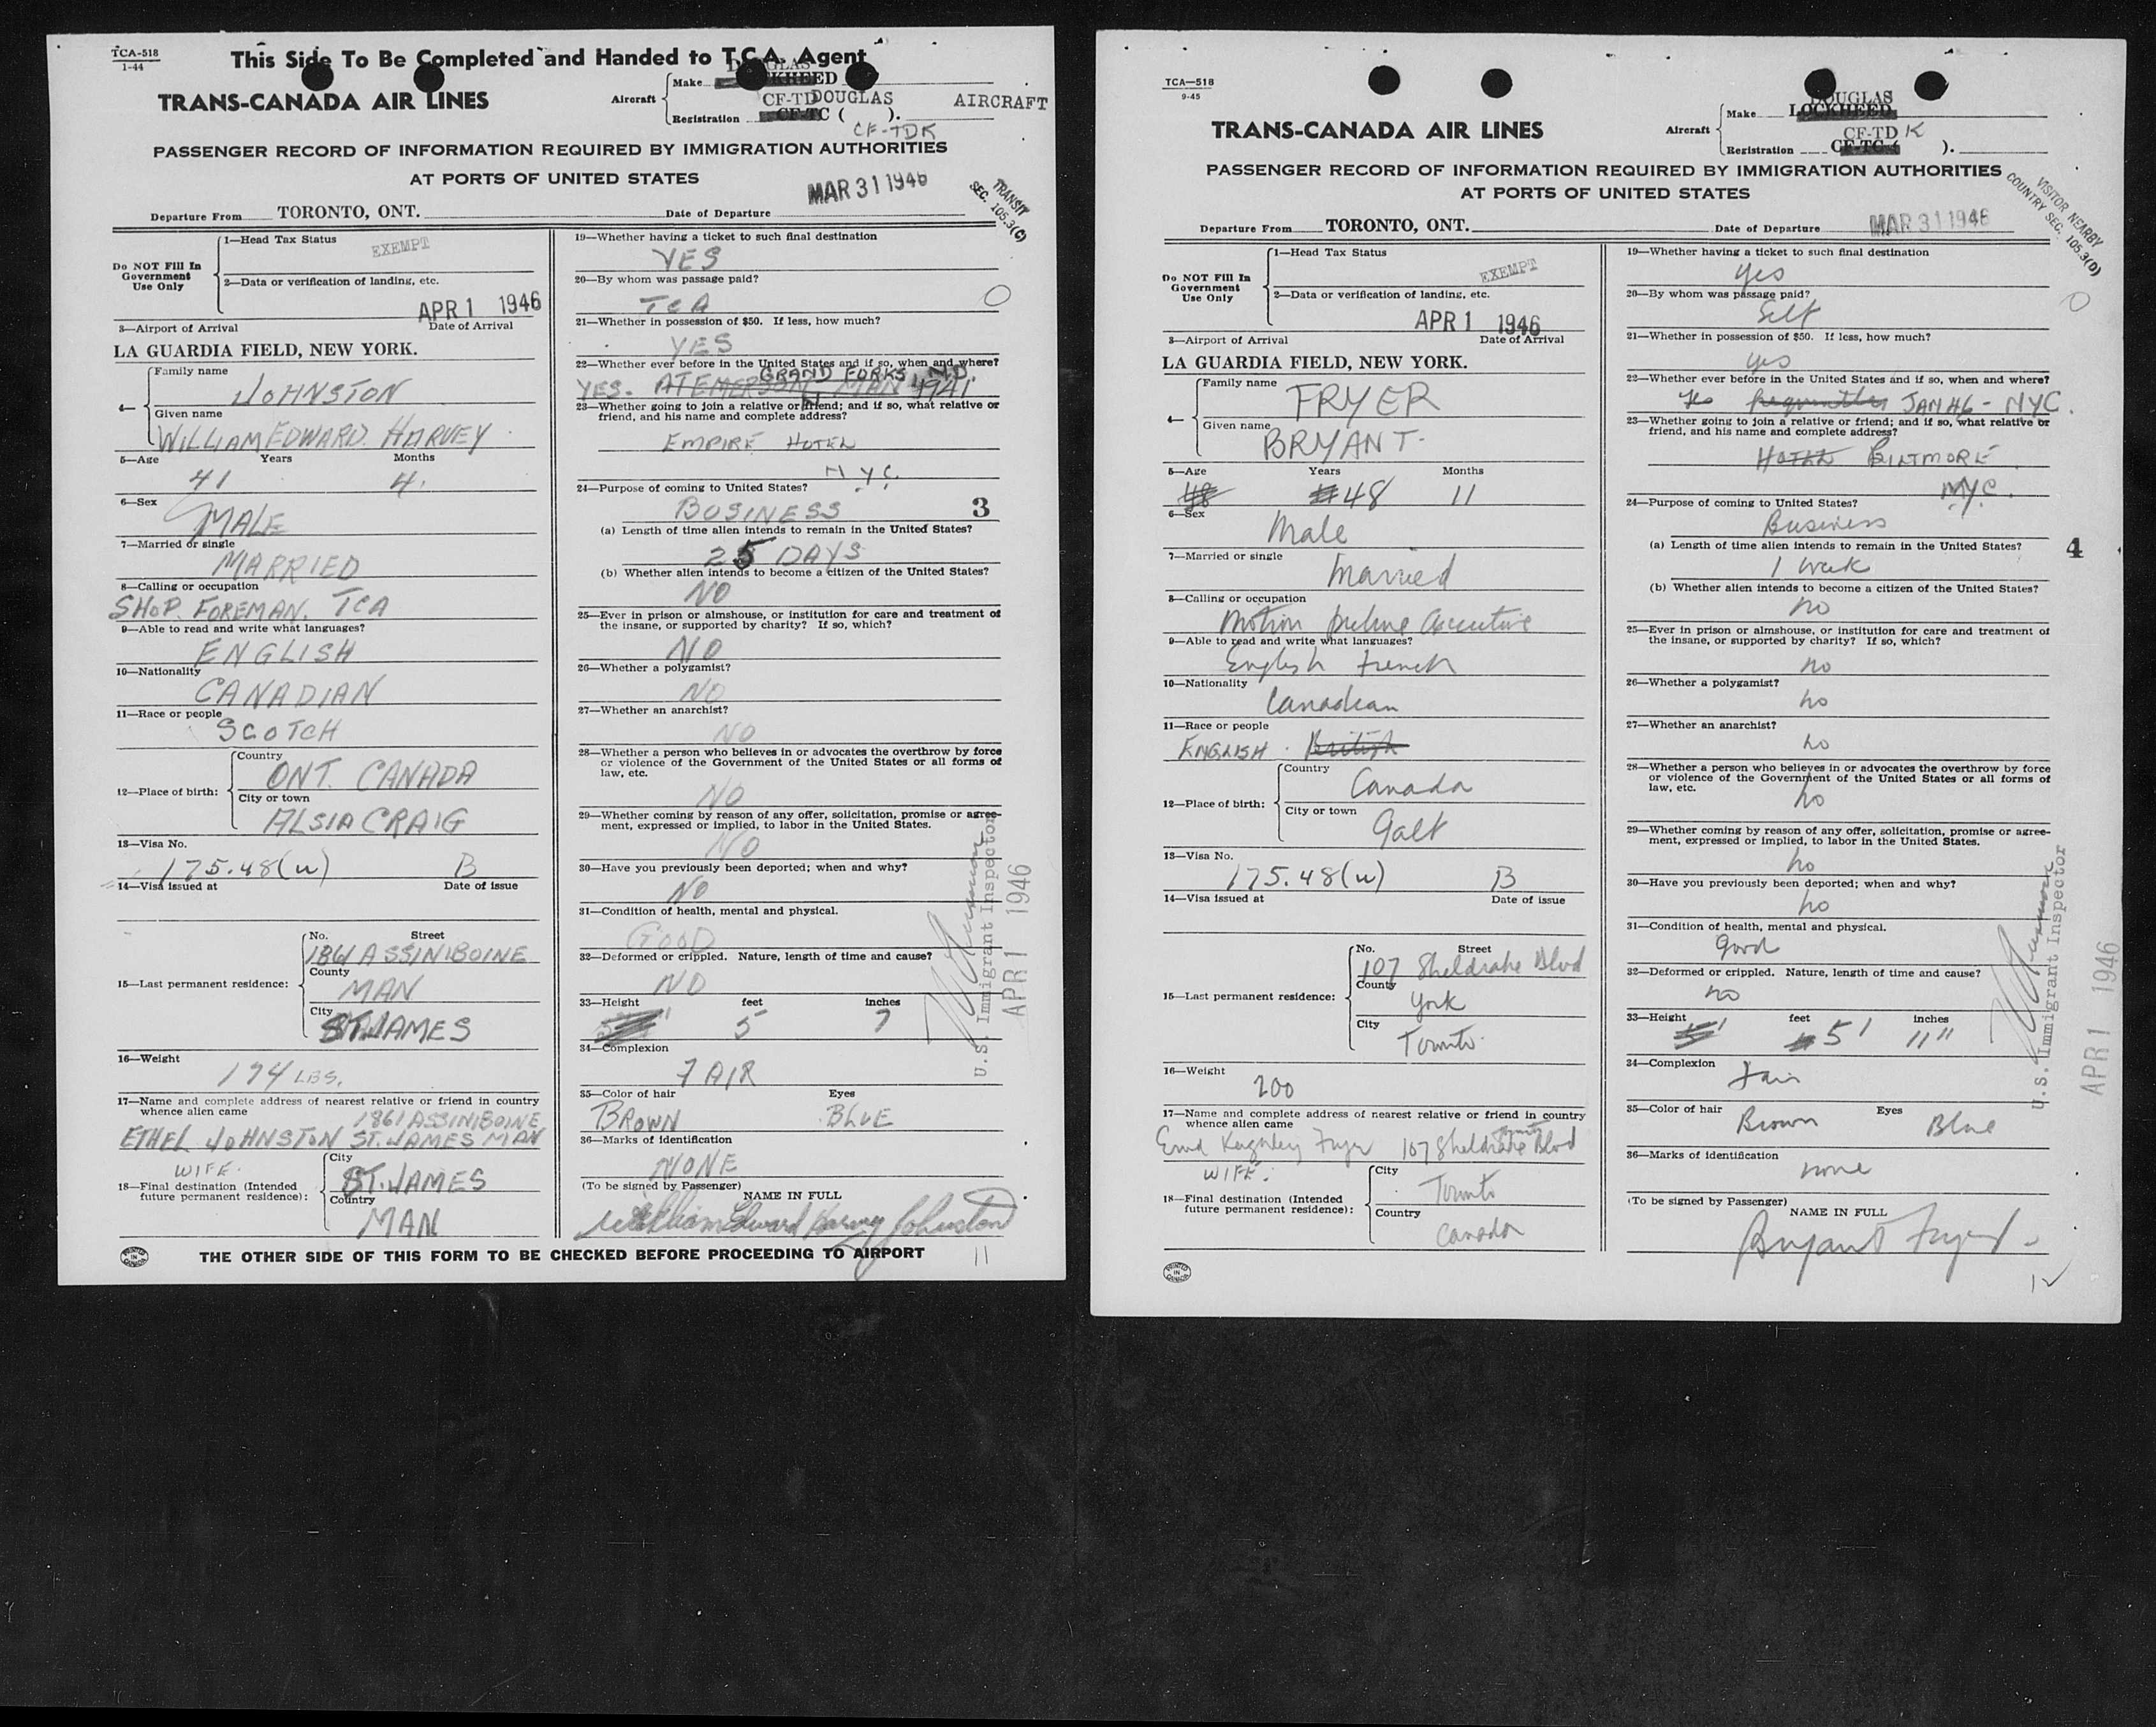 TCA-518
1-44
This Side To Be Completed and Handed to T.C.A. Agent
TRANS-CANADA AIR LINES
Aircraft
Make
DOUGLAS
LOCKHEED
Registration
CF-TD DOUGLAS AIRCRAFT
CF-TC ( ).
CF-TDK
PASSENGER RECORD OF INFORMATION REQUIRED BY IMMIGRATION AUTHORITIES
AT PORTS OF UNITED STATES
MAR 31 1946
TRANSIT
SEC. 105.3(C)
Departure From TORONTO, ONT. Date of Departure
Do NOT Fill In
Government
Use Only
1—Head Tax Status
EXEMPT
2—Data or verification of landing, etc.
APR 1 1946
3—Airport of Arrival Date of Arrival
LA GUARDIA FIELD, NEW YORK.
4—
Family name
JOHNSTON
Given name
WILLIAM EDWARD HARVEY
5—Age Years Months
41 4.
6—Sex
MALE
7—Married or single
MARRIED
8—Calling or occupation
SHOP FOREMAN. TCA
9—Able to read and write what languages?
ENGLISH
10—Nationality
CANADIAN
11—Race or people
SCOTCH
12—Place of birth:
Country
ONT. CANADA
City or town
ALSIA CRAIG
13—Visa No.
175.48(u) B
14—Visa issued at Date of issue
15—Last permanent residence:
No. Street
1861 ASSINIBOINE
County
MAN
City
ST. JAMES
16—Weight
194 LBS.
17—Name and complete address of nearest relative or friend in country
whence alien came
1861 ASSINIBOINE
ETHEL JOHNSTON ST. JAMES MAN
WIFE.
18—Final destination (Intended
future permanent residence):
City
ST. JAMES
Country
MAN
19—Whether having a ticket to such final destination
YES
20—By whom was passage paid?
TCA
21—Whether in possession of $50. If less, how much?
YES
22—Whether ever before in the United States and if so, when and where?
GRAND FORKS ND
YES. AT EMERSON MAN 1941
23—Whether going to join a relative or friend; and if so, what relative or
friend, and his name and complete address?
EMPIRE HOTEL
N.Y.C.
24—Purpose of coming to United States?
BUSINESS
3
(a) Length of time alien intends to remain in the United States?
25 DAYS
(b) Whether alien intends to become a citizen of the United States?
NO
25—Ever in prison or almshouse, or institution for care and treatment of
the insane, or supported by charity? If so, which?
NO
26—Whether a polygamist?
NO
27—Whether an anarchist?
NO
28—Whether a person who believes in or advocates the overthrow by force
or violence of the Government of the United States or all forms of
law, etc.
NO
29—Whether coming by reason of any offer, solicitation, promise or agree-
ment, expressed or implied, to labor in the United States.
NO
30—Have you previously been deported; when and why?
NO
31—Condition of health, mental and physical.
GOOD
32—Deformed or crippled. Nature, length of time and cause?
NO
33—Height feet inches
5 7
34—Complexion
FAIR
35—Color of hair Eyes
BROWN BLUE
36—Marks of identification
NONE
(To be signed by Passenger)
NAME IN FULL
William Edward Harvey Johnston
U.S. Immigrant Inspector
APR 1 1946
PRINTED IN CANADA
THE OTHER SIDE OF THIS FORM TO BE CHECKED BEFORE PROCEEDING TO AIRPORT
11
TCA—518
9-45
TRANS-CANADA AIR LINES
Aircraft
Make
DOUGLAS
LOCKHEED
Registration
CF-TD K
CF-TC-( ).
PASSENGER RECORD OF INFORMATION REQUIRED BY IMMIGRATION AUTHORITIES
AT PORTS OF UNITED STATES
VISITOR NEARBY
COUNTRY SEC. 105.3(D)
MAR 31 1946
Departure From TORONTO, ONT. Date of Departure
Do NOT Fill In
Government
Use Only
1—Head Tax Status
EXEMPT
2—Data or verification of landing, etc.
APR 1 1946
3—Airport of Arrival Date of Arrival
LA GUARDIA FIELD, NEW YORK.
4—
Family name
FRYER
Given name
BRYANT.
5—Age Years Months
48 48 11
6—Sex
Male
7—Married or single
Married
8—Calling or occupation
Motion picture executive
9—Able to read and write what languages?
English French
10—Nationality
Canadian
11—Race or people
ENGLISH. British
12—Place of birth:
Country
Canada
City or town
Galt
13—Visa No.
175.48(u) B
14—Visa issued at Date of issue
15—Last permanent residence:
No. Street
107 Sheldrake Blvd
County
York
City
Toronto
16—Weight
200
17—Name and complete address of nearest relative or friend in country
whence alien came
Toronto
Enid Keighley Fryer 107 Sheldrake Blvd
WIFE.
18—Final destination (Intended
future permanent residence):
City
Toronto
Country
Canada
19—Whether having a ticket to such final destination
yes
20—By whom was passage paid?
Self
21—Whether in possession of $50. If less, how much?
yes
22—Whether ever before in the United States and if so, when and where?
Yes frequently JAN 46 - NYC.
23—Whether going to join a relative or friend; and if so, what relative or
friend, and his name and complete address?
HOTEL BILTMORE
NYC.
24—Purpose of coming to United States?
Business
(a) Length of time alien intends to remain in the United States?
4
1 week
(b) Whether alien intends to become a citizen of the United States?
no
25—Ever in prison or almshouse, or institution for care and treatment of
the insane, or supported by charity? If so, which?
no
26—Whether a polygamist?
no
27—Whether an anarchist?
no
28—Whether a person who believes in or advocates the overthrow by force
or violence of the Government of the United States or all forms of
law, etc.
no
29—Whether coming by reason of any offer, solicitation, promise or agree-
ment, expressed or implied, to labor in the United States.
no
30—Have you previously been deported; when and why?
no
31—Condition of health, mental and physical.
Good
32—Deformed or crippled. Nature, length of time and cause?
no
33—Height feet inches
5' 11"
34—Complexion
Fair
35—Color of hair Eyes
Brown Blue
36—Marks of identification
none
(To be signed by Passenger)
NAME IN FULL
Bryant Fryer
U.S. Immigrant Inspector
APR 1 1946
PRINTED IN CANADA
12